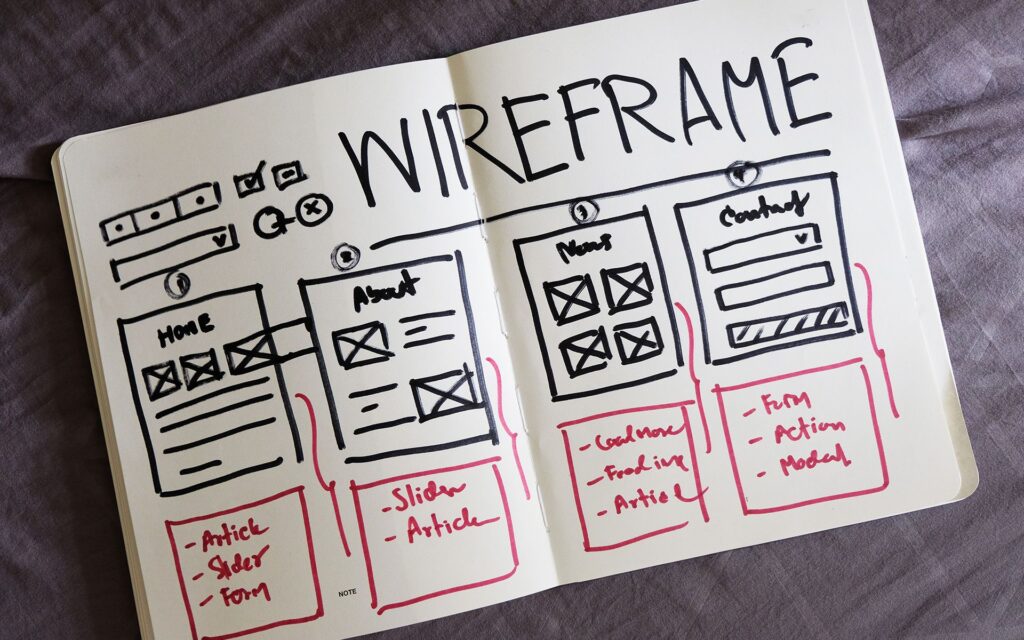 WIREFRAME
HOME
About
News
Contact
- Article
- Slider
- Form
- Slider
- Article
- Load More
- Article
- Form
- Action
- Modal
NOTE